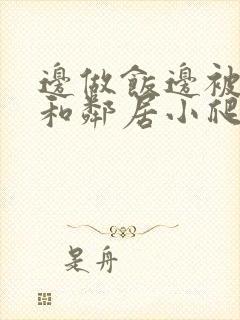 邊做飯邊被
和鄰居小爬
是舟